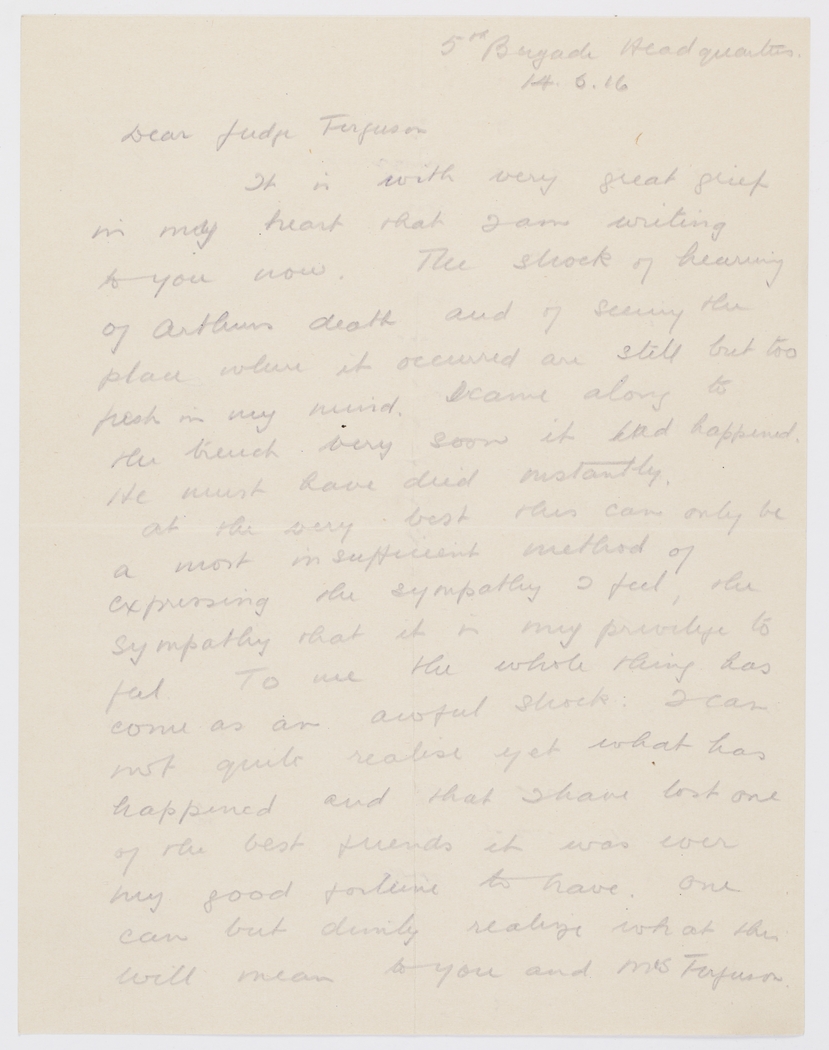 5th Brigade Headquarters.
14.6.16
Dear Judge Ferguson
It is with very great grief
in my heart that I am writing
to you now. The shock of hearing
of Arthurs death and of seeing the
place where it occurred are still but too
fresh in my mind. I came along to
the trench very soon it had happened.
He must have died instantly.
At the very best this can only be
a most insufficient method of
expressing the sympathy I feel, the
sympathy that it is my privilege to
feel To me the whole thing has
come as an awful shock: I can
not quite realise yet what has
happened and that I have lost one
of the best friends it was ever
my good fortune to have. One
can but dimly realize what this
will mean to you and Mrs Ferguson.